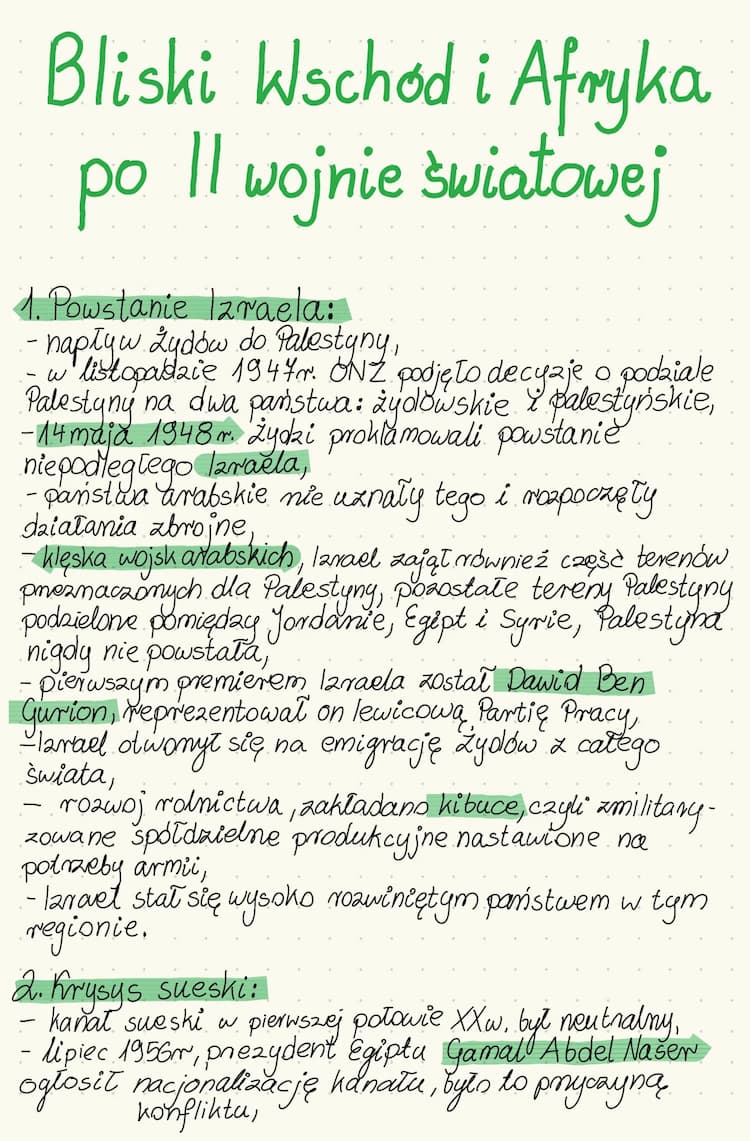 Bliski Wschód i Afryka
po II wojnie światowej
1. Powstanie Izraela:
- napływ Żydów do Palestyny,
- w listopadzie 1947r. ONZ podjęło decyzje o podziale
Palestyny na dwa państwa: żydowskie i palestyńskie,
- 14 maja 1948r. Żydzi proklamowali powstanie
niepodległego Izraela,
- państwa arabskie nie uznały tego i rozpoczęły
działania zbrojne,
- klęska wojsk arabskich, Izrael zajął również część terenów
przeznaczonych dla Palestyny, pozostałe tereny Palestyny
podzielone pomiędzy Jordanie, Egipt i Syrie, Palestyna
nigdy nie powstała,
- pierwszym premierem Izraela został Dawid Ben
Gurion, reprezentował on lewicową Partię Pracy,
- Izrael otworzył się na emigrację Żydów z całego
świata,
- rozwój rolnictwa, zakładano kibuce, czyli zmilitary-
zowane spółdzielne produkcyjne nastawione na
potrzeby armii,
- Izrael stał się wysoko rozwiniętym państwem w tym
regionie.
2. Krysys sueski:
- kanał sueski w pierwszej połowie XXw. był neutralny,
- lipiec 1956r, prezydent Egiptu Gamal Abdel Naser
ogłosił nacjonalizację kanału, było to przyczyną
konfliktu,